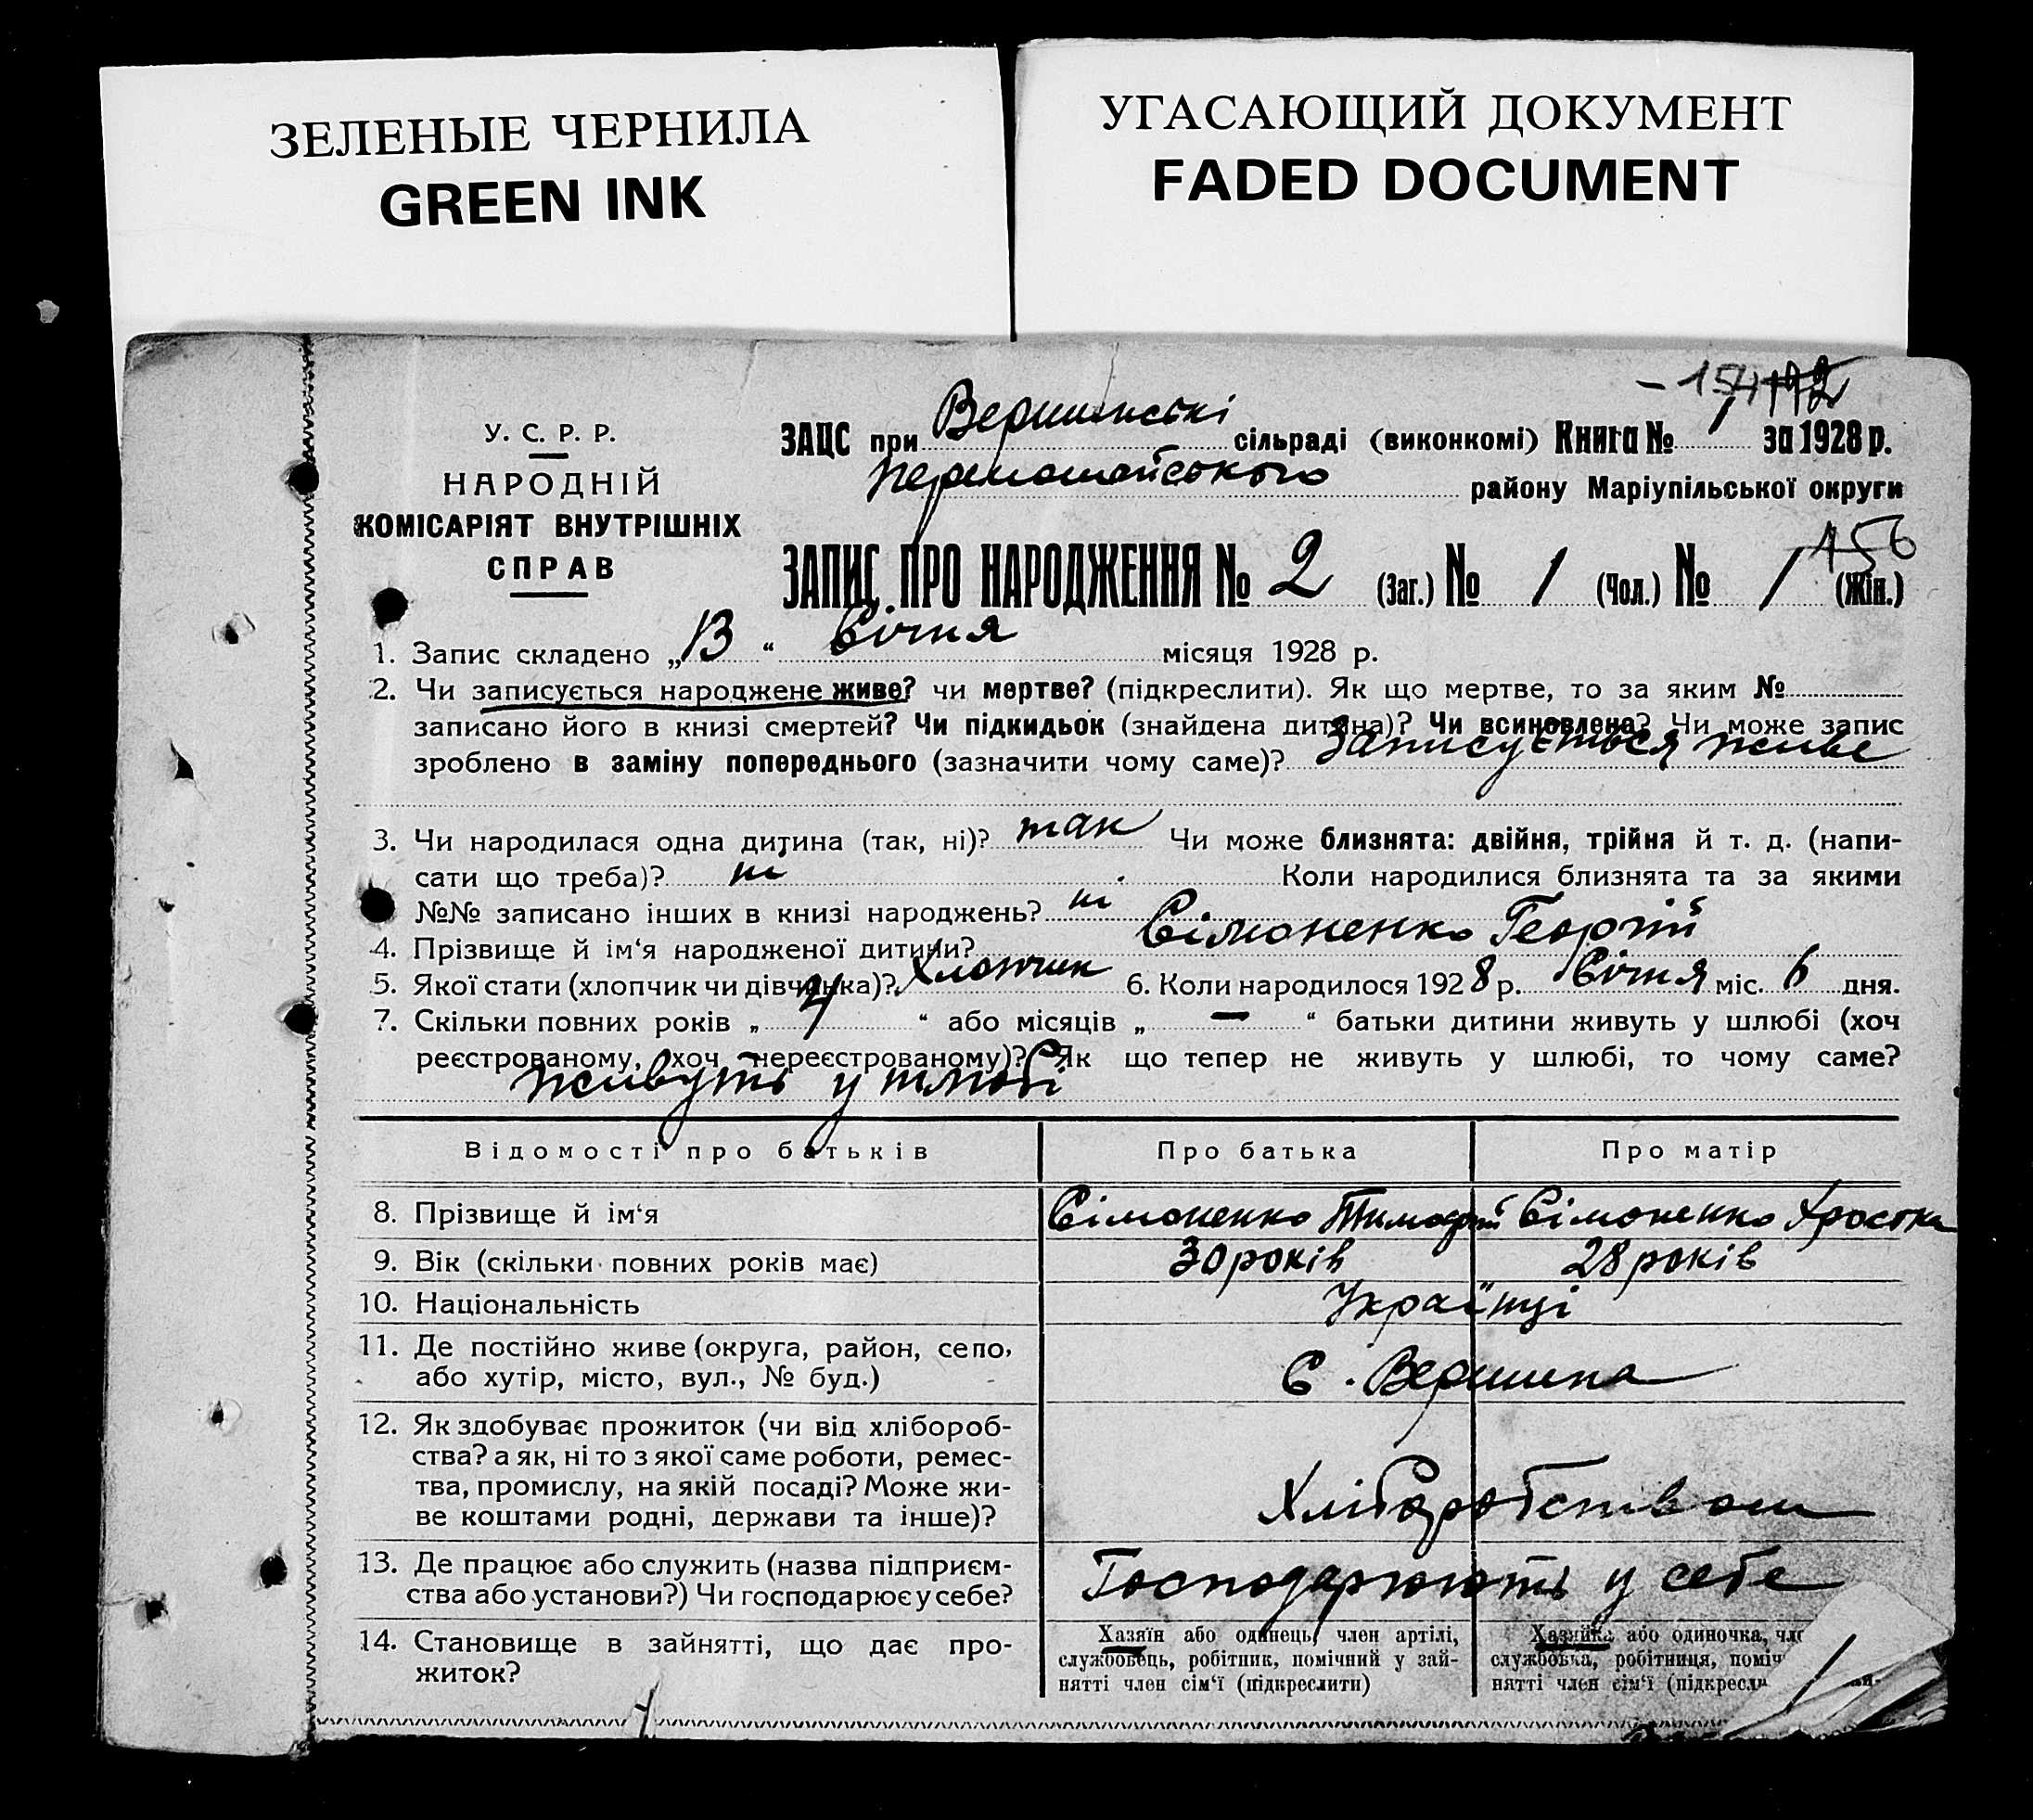 ЗЕЛЕНЫЕ ЧЕРНИЛА
GREEN INK
УГАСАЮЩИЙ ДОКУМЕНТ
FADED DOCUMENT
У. С. Р. Р.
НАРОДНІЙ
КОМІСАРІЯТ ВНУТРІШНІХ
СПРАВ
ЗАЦС при Вершинські сільраді (виконкомі) Книга № 1 за 1928 р.
Першомайського району Маріупільської округи
156
ЗАПИС ПРО НАРОДЖЕННЯ № 2 (Заг.) № 1 (Чол.) № 1 (Жін.)
1. Запис складено „13“ Січня місяця 1928 р.
2. Чи записується народжене живе? чи мертве? (підкреслити). Як що мертве, то за яким №
записано його в книзі смертей? Чи підкидьок (знайдена дитина)? Чи всиновлена? Чи може запис
зроблено в заміну попереднього (зазначити чому саме)? Записується живе
3. Чи народилася одна дитина (так, ні)? так Чи може близнята: двійня, трійня й т. д. (напи-
сати що треба)? ні Коли народилися близнята та за якими
№№ записано інших в книзі народжень? ні
4. Прізвище й ім‘я народженої дитини? Сімоненко Георгій
5. Якої стати (хлопчик чи дівчинка)? Хлопчик 6. Коли народилося 1928 р. Січня міс. 6 дня.
7. Скільки повних років „ 4 “ або місяців „ — “ батьки дитини живуть у шлюбі (хоч
реєстрованому, хоч нереєстрованому)? Як що тепер не живуть у шлюбі, то чому саме?
живуть у шлюбі
Відомості про батьків Про батька Про матір
8. Прізвище й ім‘я Сімоненко Тимофій Сімоненко Хростка
9. Вік (скільки повних років має) 30 років 28 років
10. Національність Українці
11. Де постійно живе (округа, район, село,
або хутір, місто, вул., № буд.) С. Вершина
12. Як здобуває прожиток (чи від хлібороб-
ства? а як, ні то з якої саме роботи, ремес-
тва, промислу, на якій посаді? Може жи-
ве коштами родні, держави та інше)? Хліборобством
13. Де працює або служить (назва підприєм-
ства або установи?) Чи господарює у себе? Господарюють у себе
14. Становище в зайнятті, що дає про-
житок?
Хазяїн або одинець, член артілі,
службовець, робітник, помічний у зай-
нятті член сім‘ї (підкреслити)
Хазяйка або одиночка,
службовка, робітниця,
нятті член сім‘ї